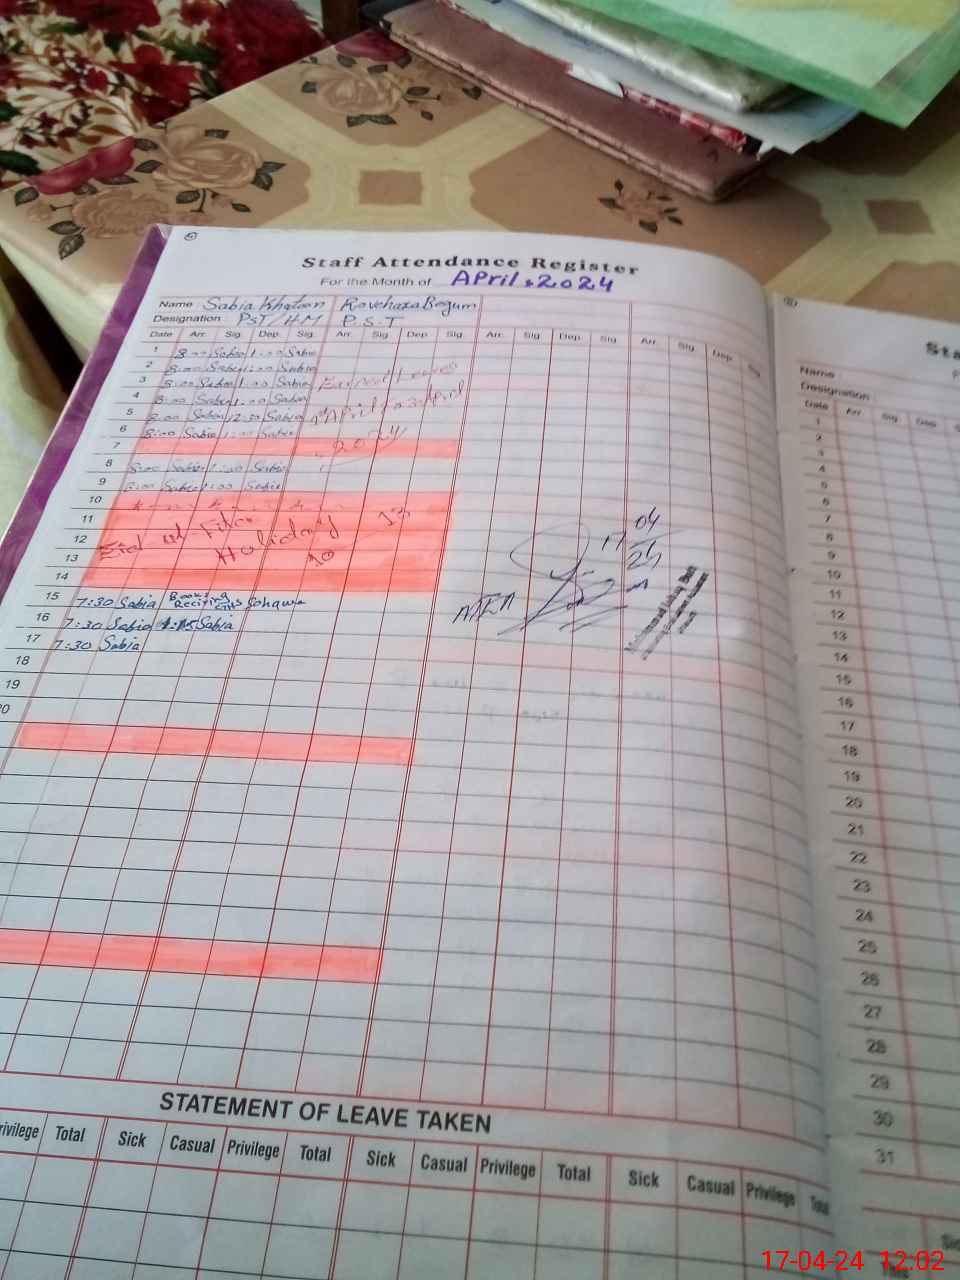 Staff Attendance Register
For the Month of April, 2024
Name Sabia Khatoon Rovehaza Begum
Designation: PST/H.M P.S.T
Date Arr. Sig. Dep. Sig. Arr. Sig. Dep. Sig. Arr. Sig. Dep. Sig. Arr. Sig. Dep.
1 8:00 Sabia 1:00 Sabia
2 8:00 Sabia 1:00 Sabia
3 8:00 Sabia 1:00 Sabia Earned Leaves
4 8:00 Sabia 1:00 Sabia
5 8:00 Sabia 12:30 Sabia 1st April to 3 April
6 8:00 Sabia 1:00 Sabia 2024
7
8 8:00 Sabia 1:00 Sabia
9 8:00 Sabia 1:00 Sabia
10
11 Eid-ul-Fiter 13
12 Holiday
13 10
14
15 7:30 Sabia Books Reciving GHS Sohawa
16 7:30 Sabia Sabia
17 7:30 Sabia
18
19
20
17 04
24
STATEMENT OF LEAVE TAKEN
Total Sick Casual Privilege Total Sick Casual Privilege Total Sick Casual Privilege
Name
Designation
Date Arr. Sig. Dep.
1
2
3
4
5
6
7
8
9
10
11
12
13
14
15
16
17
18
19
20
21
22
23
24
25
26
27
28
29
30
31
17-04-24 12:02